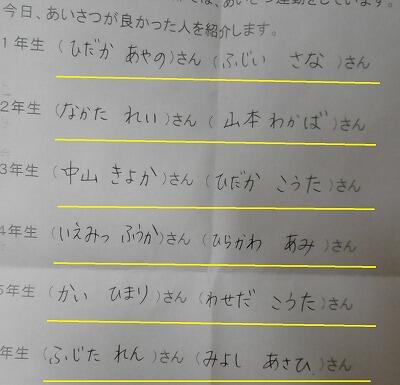 は、あいさつ運動をしています。
今日、あいさつが良かった人を紹介します。
1年生(ひだか あやの)さん(ふじい さな)さん
2年生(なかた れい)さん(山本 わかば)さん
3年生(中山 きよか)さん(ひだか こうた)さん
4年生(いえみつ ふうか)さん(ひらかわ あみ)さん
5年生(かい ひまり)さん(わせだ こうた)さん
年生(ふじた れん)さん(みよし あさひ)さん